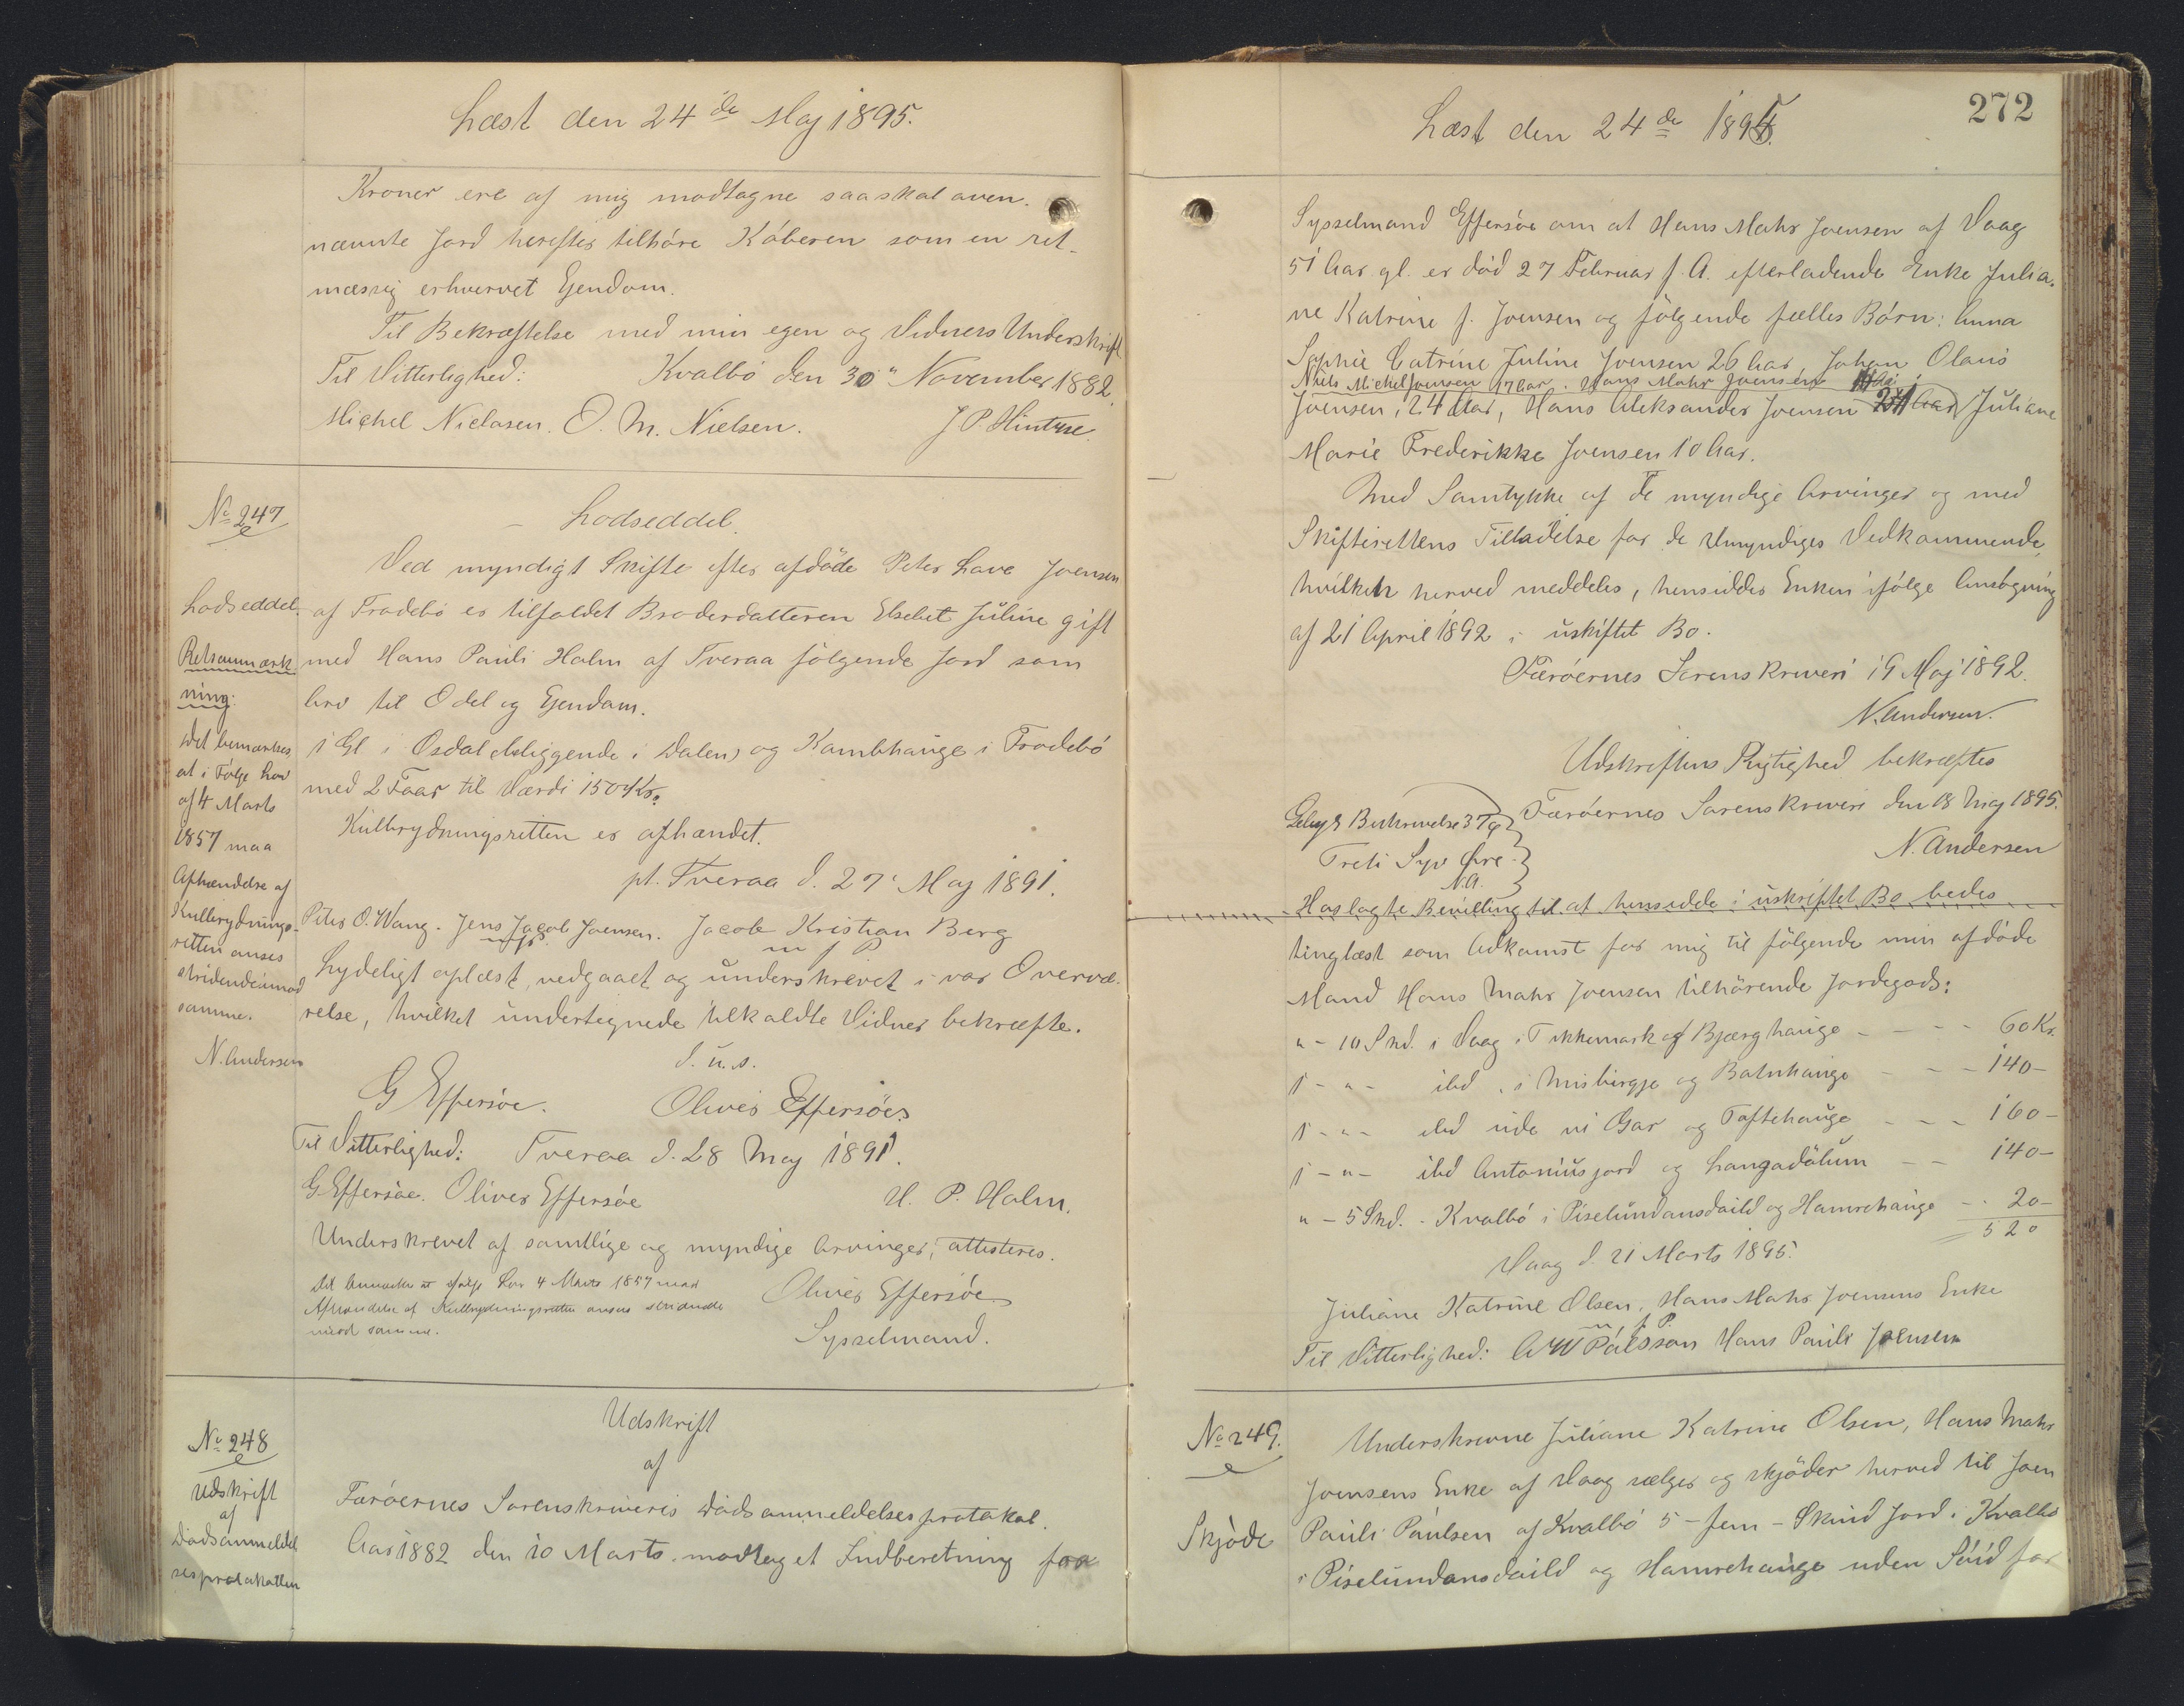 Læst den 24de Maj 1895.
Kroner ere af mig modtagne saa skal aven-
nævnte Jord herefter tilhøre Køberen som en ret-
mæssig erhvervet Ejendom.
Til Bekræftelse med min egen og Vidners Underskrift
Til Vitterlighed: Kvalbø den 30" November 1882.
Michel Nielasen. O. M. Nielsen. J P. Hintze
No 247
Lodseddel.
Lodseddel.
Retsanmærk
ning:
Det bemærkes,
at i Følge Lov
af 4 Marts
1857 maa
Afhændelse af
Kulbrydnings-
retten anses
stridende imod
samme.
N. Andersen
Ved myndigt Skifte efter afdøde Peter Lave Joensen
af Frodebø er tilfaldet Broderdatteren Elsebet Juline gift
med Hans Pauli Holm af Tveraa følgende Jord som
Arv til Odel og Ejendom.
1 Gl i Øsdal (beliggende i Dalen) og Kambhauge i Frodebø
med 2 Faar til Værdi 150 Kr.
Kulbrydningsretten er afhændet.
pt. Tveraa d. 27' Maj 1891.
Peter O. Wang. Jens Jacob Joensen. Jacob Kristian Berg
m f P. m f P
Lydeligt oplæst, vedgaaet og underskrevet i vor Overvæ-
relse, hvilket undertegnede tilkaldte Vidner bekræfte.
d. u. s.
G Effersøe. Oliver Effersøe.
Til Vitterlighed: Tveraa d. 28 Maj 1891.
G. Effersøe. Oliver Effersøe H. P. Holm.
Underskrevet af samtlige og myndige Arvinger, attesteres.
Det bemærkes at ifølge Lov 4 Marts 1857 maa
Afhændelse af Kulbrydningsretten anses stridende
imod samme.
Oliver Effersøe
Sysselmand.
No 248
Udskrift
af
Dødsanmeldel
sesprotokollen
Udskrift
af
Færøernes Sorenskriveris Dødsanmeldelsesprotokol.
Aar 1882 den 10 Marts modtaget Indberetning fra
272
Læst den 24de 1895.
Sysselmand Effersøe om at Hans Mohr Joensen af Vaag
51 Aar gl. er død 27 Februar f. A. efterladende Enke Julia-
ne Katrine f. Joensen og følgende fælles Børn: Anna
Sophie Catrine Juline Joensen 26 Aar Johan Olaus
Niels Michel Joensen 17 Aar. Hans Mohr Joensen
Joensen, 24 Aar, Hans Aleksander Joensen 21 Aar Juliane
Marie Frederikke Joensen 10 Aar.
Med Samtykke af de myndige Arvinger og med
Skifterettens Tilladelse for de Umyndiges Vedkommende,
hvilken herved meddeles, hensidder Enken ifølge Ansøgning
af 21 April 1892 i uskiftet Bo.
Færøernes Sorenskriveri 19 Maj 1892.
N. Andersen.
Udskriftens Rigtighed bekræftes
Gebyr Beskrivelse 37 Ø Færøernes Sorenskriveri den 18 Maj 1895.
Treti Syv Øre. N. Andersen
N.A.
Hoslagte Bevilling til at hensidde i uskiftet Bo bedes
tinglæst som Adkomst for mig til følgende min afdøde
Mand Hans Mohr Joensen tilhørende Jordegods:
" - 10 Skd. i Vaag i Tikkemark og Bjærghauge - - - - 60 Kr.
1 - " - ibd. i Misbirgje og Botnhauge - - - 140 -
1 - " - ibd ude vi Gar og Toftehauge - - - 160 -
1 - " - ibd Antoniusjord og Langadølum - - 140 -
" - 5 Skd. - Kvalbø i Piselundansdaild og Hamrehauge - - 20 -
520
Vaag d. 21 Marts 1895.
Juliane Katrine Olsen, Hans Mohr Joensens Enke
m. f. P.
Til Vitterlighed: A W Pálsson Hans Pauli Joensen
No 249.
Skjøde
Underskrevne Juliane Katrine Olsen, Hans Mohr
Joensens Enke af Vaag sælger og skjøder herved til Joen
Pauli Paulsen af Kvalbø 5 - fem - Skind Jord i Kvalbø
i Piselundansdaild og Hamrehauge uden Süd for